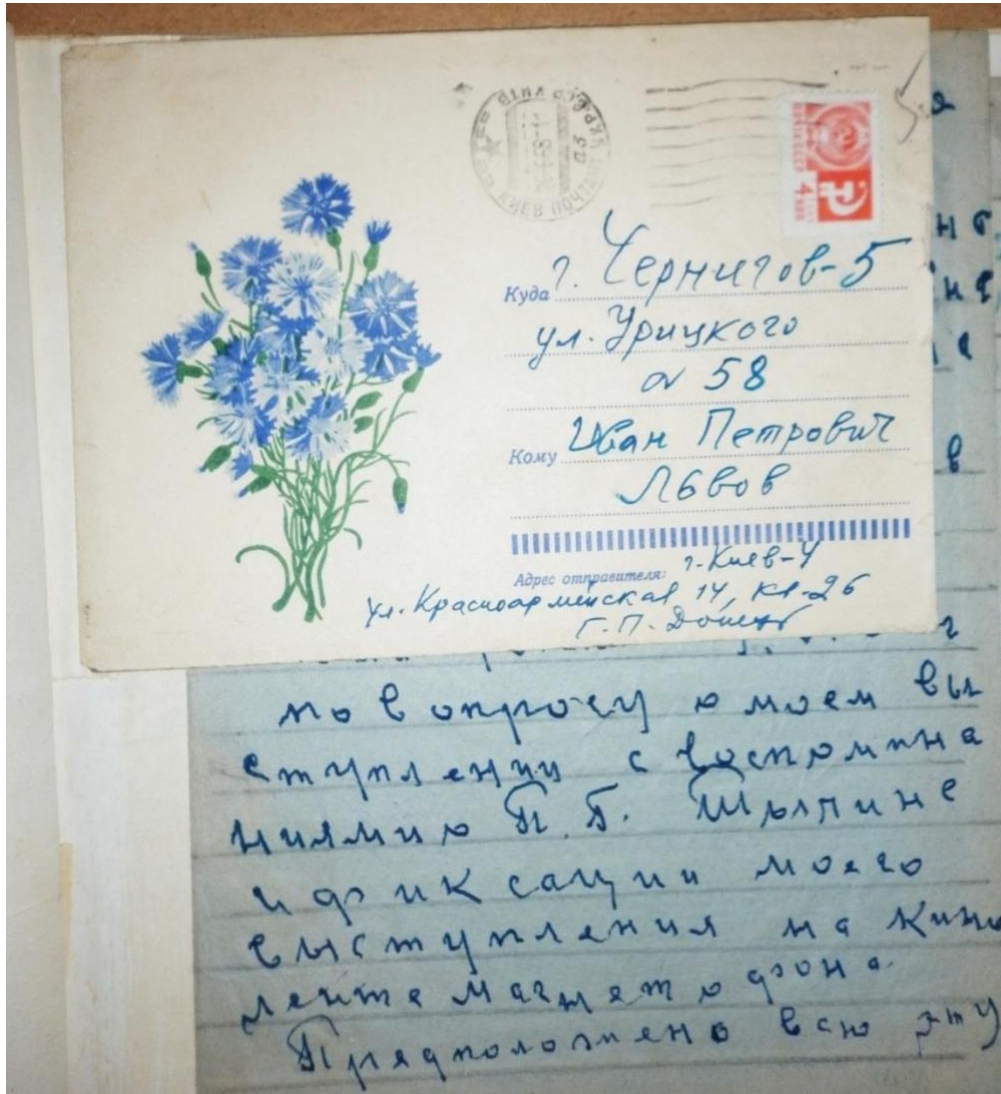 КИЕВ ПОЧТАМТ
ПОЧТА СССР
4
КОП
Куда г. Чернигов-5
ул. Урицкого
№ 58
Кому Иван Петрович
Львов
Адрес отправителя: г. Киев-4
ул. Красноармейская 14, кв. 26
Г. П. Донец
по вопросу о моем вы
ступлении с воспомина
ниями о П. Г. Тычине
и фиксации моего
выступления на кино
ленте магнетофона.
Предположено всю эту